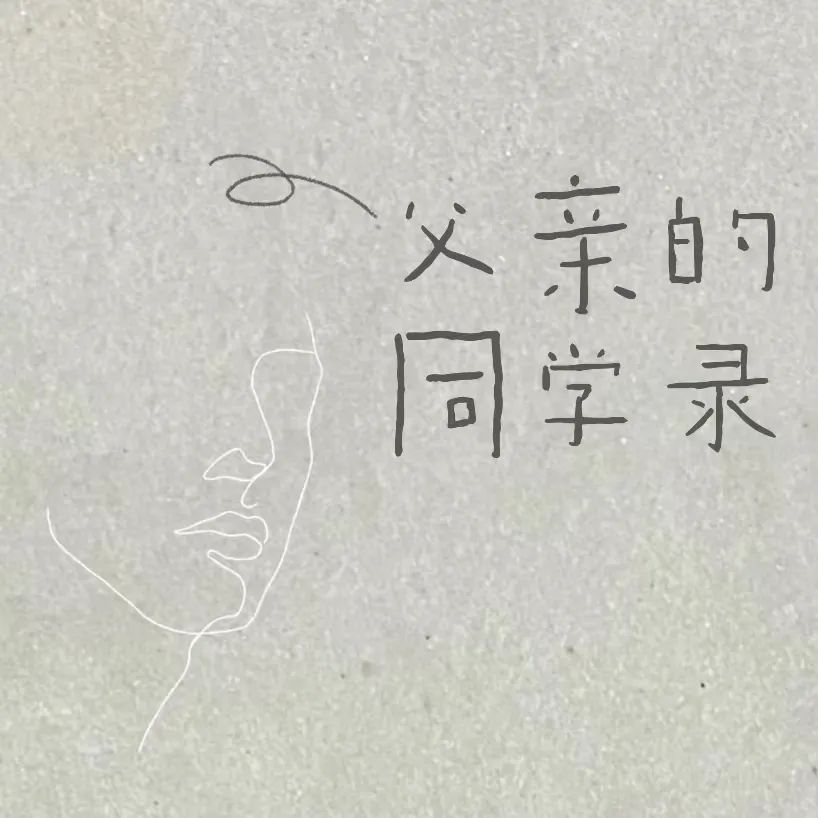 父亲的
同学录